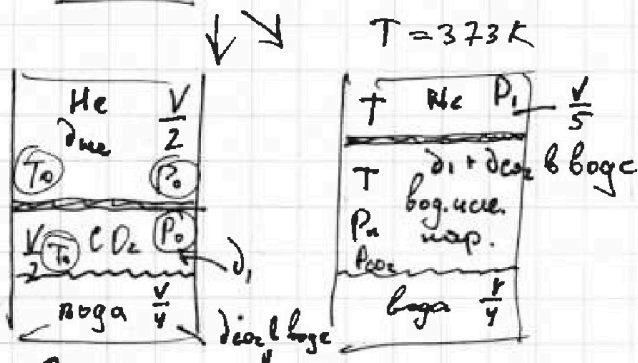 T = 373 K
He V/2
ν_He
T₀ P₀
V/2 T₀ CO₂ P₀
ν₁
вода V/4
ν_CO₂ в воде
T He P₁ V/5
T ν₁ + ν_CO₂ в воде
Pₙ вод. нас. пар.
P_CO₂
вода V/4